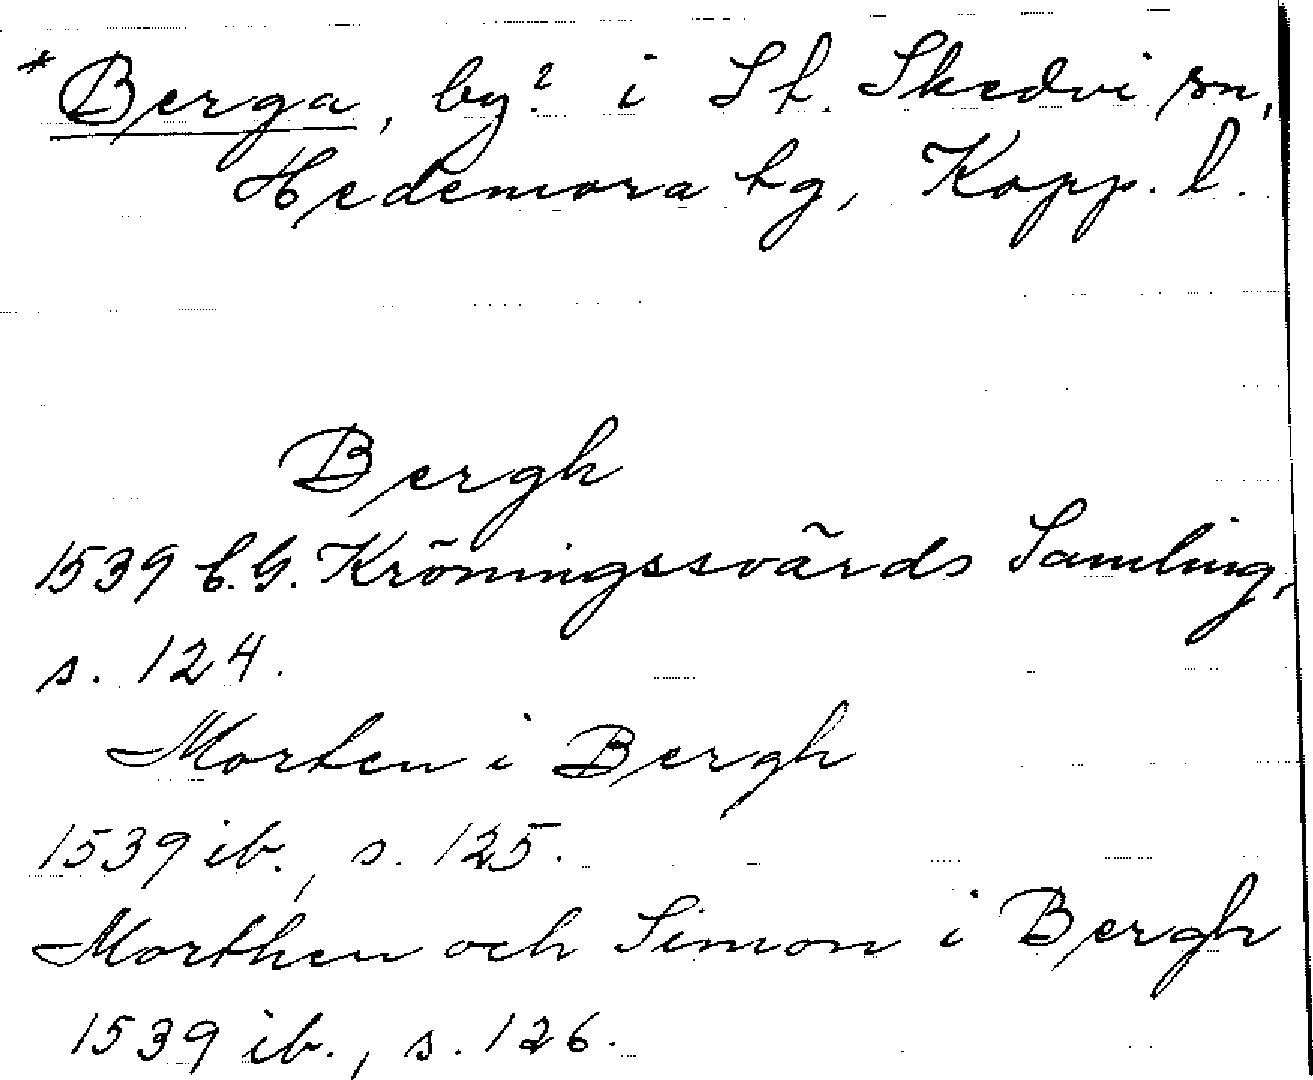 *Berga, by? i St. Skedvi sn,
Hedemora tg, Kopp. l.
Bergh
1539 C.G. Kröningssvärds Samling,
s. 124.
Morten i Bergh
1539 ib., s. 125.
Morthen och Simon i Bergh
1539 ib., s. 126.